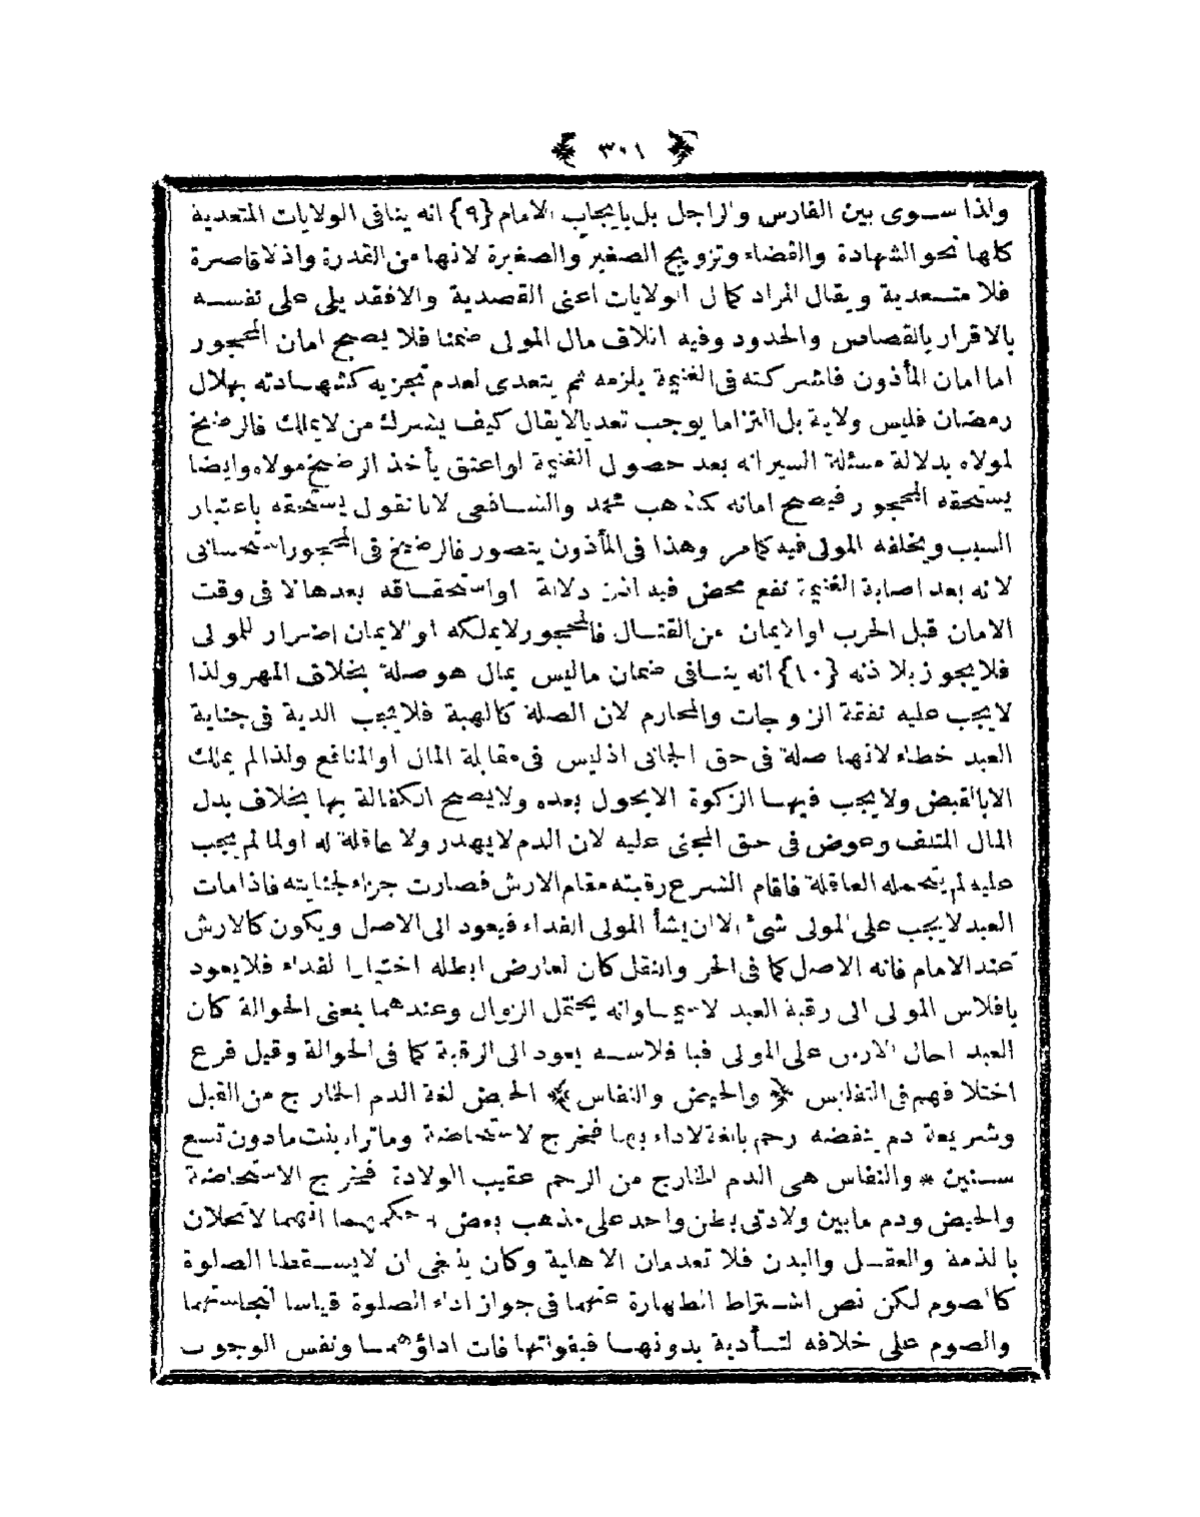 ﴿ ٣٠١ ﴾
ولذا سوى بين الفارس والراجل بل بايجاب الامام {٩} انه ينافى الولايات المتعدية
كلها نحو الشهادة والقضاء وتزويج الصغير والصغيرة لانها من القدرة واذ لا قاصرة
فلا متعدية ويقال المراد كمال الولايات اعنى القصدية والا فقد يلى على نفسه
بالاقرار بالقصاص والحدود وفيه اتلاف مال المولى ضمنا فلا يصح امان المحجور
اما امان المأذون فلشركته فى الغنيمة يلزمه ثم يتعدى لعدم تجزيه كشهادته بهلال
رمضان فليس ولاية بل التزاما يوجب تعديا لا يقال كيف يشرك من لا يملك فالرضخ
لمولاه بدلالة مسئلة السير انه بعد حصول الغنيمة لو اعتق يأخذ الرضخ مولاه وايضا
يستحقه المحجور فيصح امانه كمذهب محمد والشافعى لانا نقول يستحقه باعتبار
السبب ويخلفه المولى فيه كما مر وهذا فى المأذون يتصور فالرضخ فى المحجور استحسانى
لانه بعد اصابة الغنيمة نفع محض فيه اذن دلالة او استحقاقه بعدها لا فى وقت
الامان قبل الحرب او الايمان من القتال فالمحجور لا يملكه او الايمان اضرار للمولى
فلا يجوز بلا ذنه {١٠} انه ينافى ضمان ما ليس بمال هو صلة بخلاف المهر ولذا
لا يجب عليه نفقة الزوجات والمحارم لان الصلة كالهبة فلا يجب الدية فى جناية
العبد خطاء لانها صلة فى حق الجانى اذ ليس فى مقابلة المال او المنافع ولذا لم يملك
الا بالقبض ولا يجب فيها الزكوة الا بحول بعده ولا يصح الكفالة بها بخلاف بدل
المال المتلف وعوض فى حق المجنى عليه لان الدم لا يهدر ولا عاقلة له او لما لم يجب
عليه لم يتحمله العاقلة فاقام الشرع رقبته مقام الارش فصارت جزاء لجنايته فاذا مات
العبد لا يجب على المولى شئ الا ان يشأ المولى الفداء فيعود الى الاصل ويكون كالارش
عند الامام فانه الاصل كما فى الحر والنقل كان لعارض ابطله اختيارا لفداء فلا يعود
بافلاس المولى الى رقبة العبد لا سيما وانه يحتمل الزوال وعندهما بمعنى الحوالة كان
العبد احال الارش على المولى فبا فلاسه يعود الى الرقبة كما فى الحوالة وقيل فرع
اختلا فهم فى التفليس ﴿ والحيض والنفاس ﴾ الحيض لغة الدم الخارج من القبل
وشريعة دم ينفضه رحم بالغة لاداء بها فخرج الاستحاضة وما تراه بنت ما دون تسع
سنين * والنفاس هى الدم الخارج من الرحم عقيب الولادة فخرج الاستحاضة
والحيض ودم ما بين ولادتى بطن واحد على مذهب بعض وحكمهما انهما لا تخلان
بالذمة والعقل والبدن فلا تعدمان الاهلية وكان ينبغى ان لا يسقطا الصلوة
كالصوم لكن نص اشتراط الطهارة عنهما فى جواز اداء الصلوة قياسا لنجاستهما
والصوم على خلافه لتأدية بدونها فبفواتها فات اداؤهما ونفس الوجوب